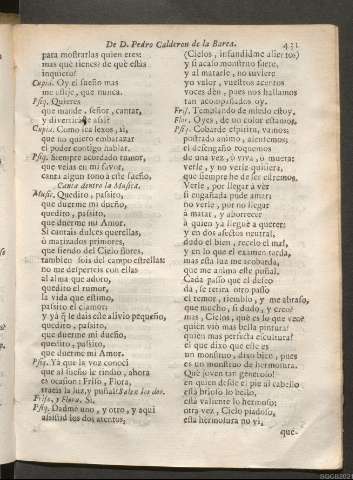 De D. Pedro Calderon de la Barca. 431
para mostrarlas quien eres:
mas què tienes? de què estàs
inquieto?
Cupid. Oy el sueño mas
me aflije, que nunca.
Psiq. Quieres
que mande, señor, cantar,
y divertirte assi?
Cupid. Como sea lexos, si,
que no quiero embarazar
el poder contigo hablar.
Psiq. Siempre acordado rumor,
que velas en mi favor,
canta algun tono à este sueño.
Canta dentro la Musica.
Music. Quedito, passito,
que duerme mi dueño,
quedito, passito,
que duerme mi Amor.
Si cantais dulces querellas,
ò matizados primores,
que siendo del Cielo flores,
tambien sois del campo estrellas:
no me desperteis con ellas
al alma que adoro,
quedito el rumor,
la vida que estimo,
passito el clamor:
y yà q̃ le dais este alivio pequeño,
quedito, passito,
que duerme mi dueño,
quedito, passito,
que duerme mi Amor.
Psiq. Yà que la voz conoci
que al sueño le rindiò, ahora
es ocasion: Friso, Flora,
traeis la luz, y puñal? Salen los dos.
Friso, y Flora. Si.
Psiq. Dadme uno, y otro, y aqui
assistid los dos atentos;
(Cielos, infundidme alientos)
y si acaso monstruo fuere,
y al matarle, no tuviere
yo valor, vuestros acentos
voces dèn, pues nos hallamos
tan acompañados oy.
Fris. Temblando de miedo estoy.
Flor. Oyes, de no color estamos.
Psiq. Cobarde espiritu, vamos;
postrado animo, alentemos;
el desengaño toquemos
de una vez, ò viva, ò muera:
verle, y no verle quisiera,
que siempre he de ser estremos.
Verle, por llegar à vèr
si engañada pude amar:
no verle, por no llegar
à matar, y aborrecer
à quien yà lleguè à querer:
y en dos afectos neutral,
dudo el bien, recelo el mal,
y en lo que el examen tarda,
mas esta luz me acobarda,
que me anima este puñal.
Cada passo que el deseo
dà, se retira otro passo
el temor; tiemblo, y me abraso,
que mucho, si dudo, y creo?
mas, Cielos, què es lo que veo?
quien viò mas bella pintura?
quien mas perfecta escultura?
el que dixo que este es
un monstruo, dixo bien, pues
es un monstruo de hermosura.
Què joven tan generoso!
en quien desde el pie al cabello
està brioso lo bello,
està valiente lo hermoso:
otra vez, Cielo piadoso,
esta hermosura no vi;
que-